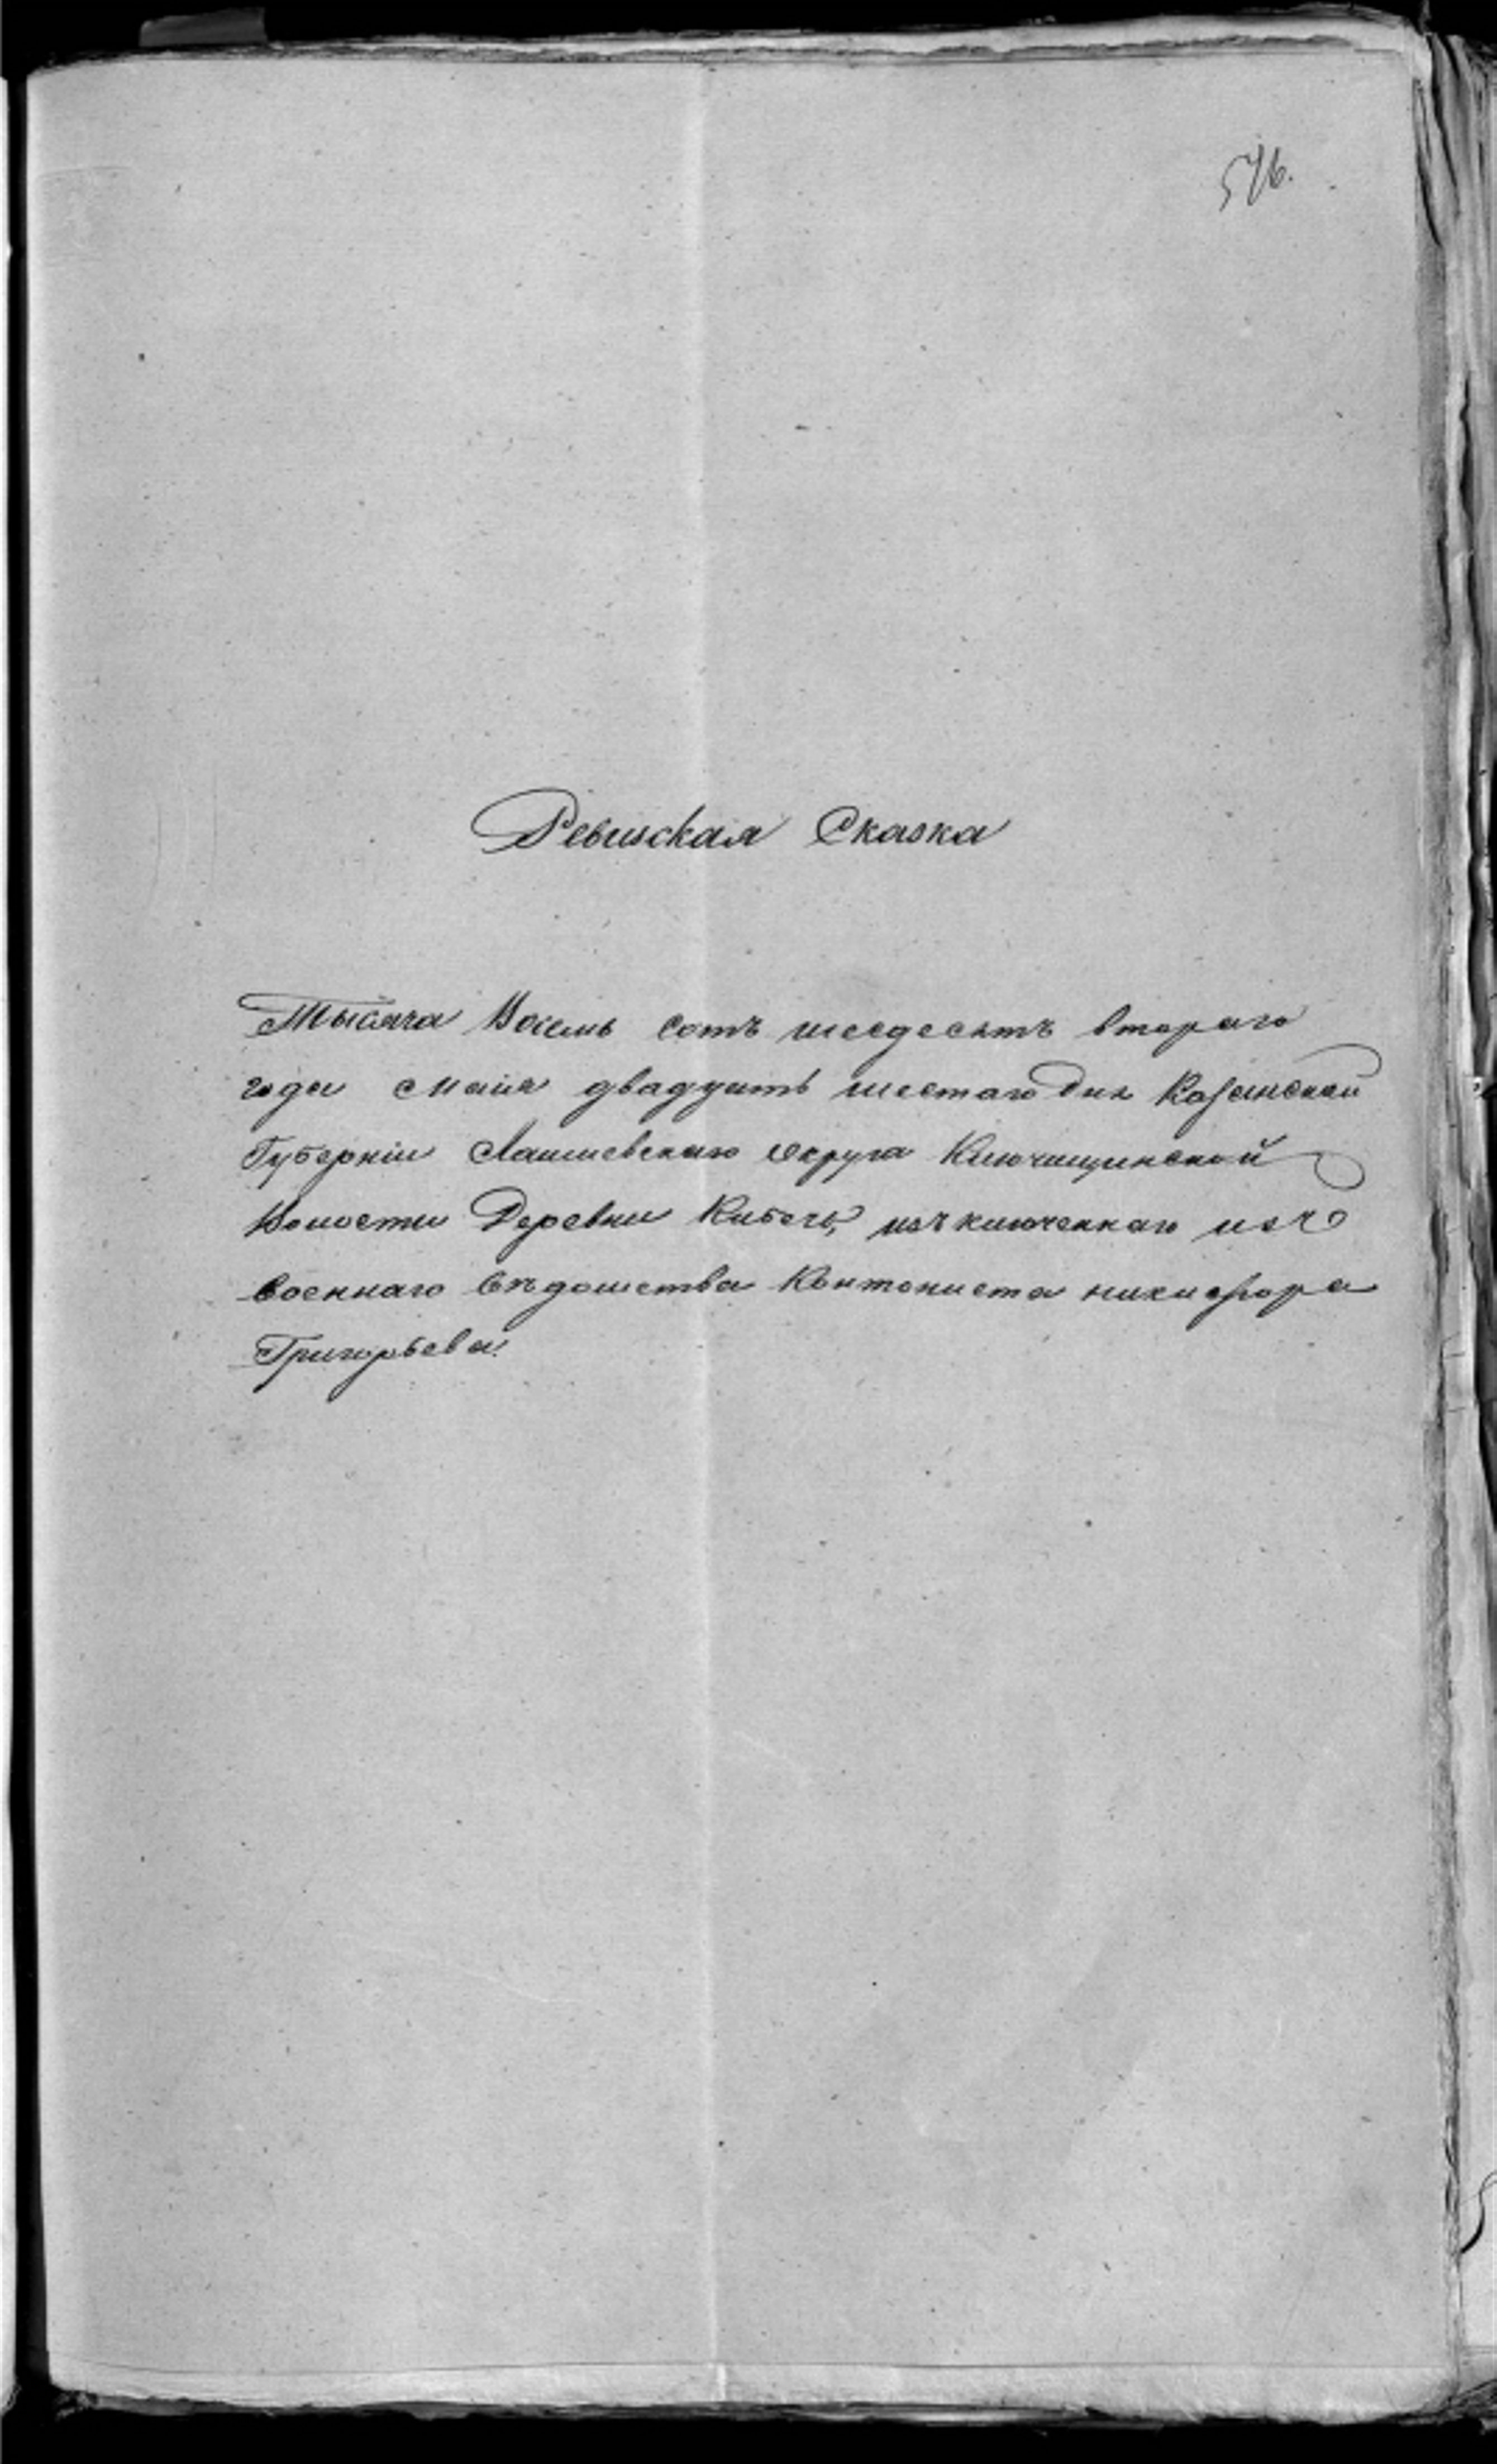 576.
Ревиская Сказка
Тысяча Восемь сотъ шесдесятъ втораго
года Маия двадцать шестаго дня Казанской
Губерніи Лаишевскаго округа Ключищинской
Волости Деревни изъключеннаго изъ
военнаго вѣдомства Контониста никифора
Григорьева.